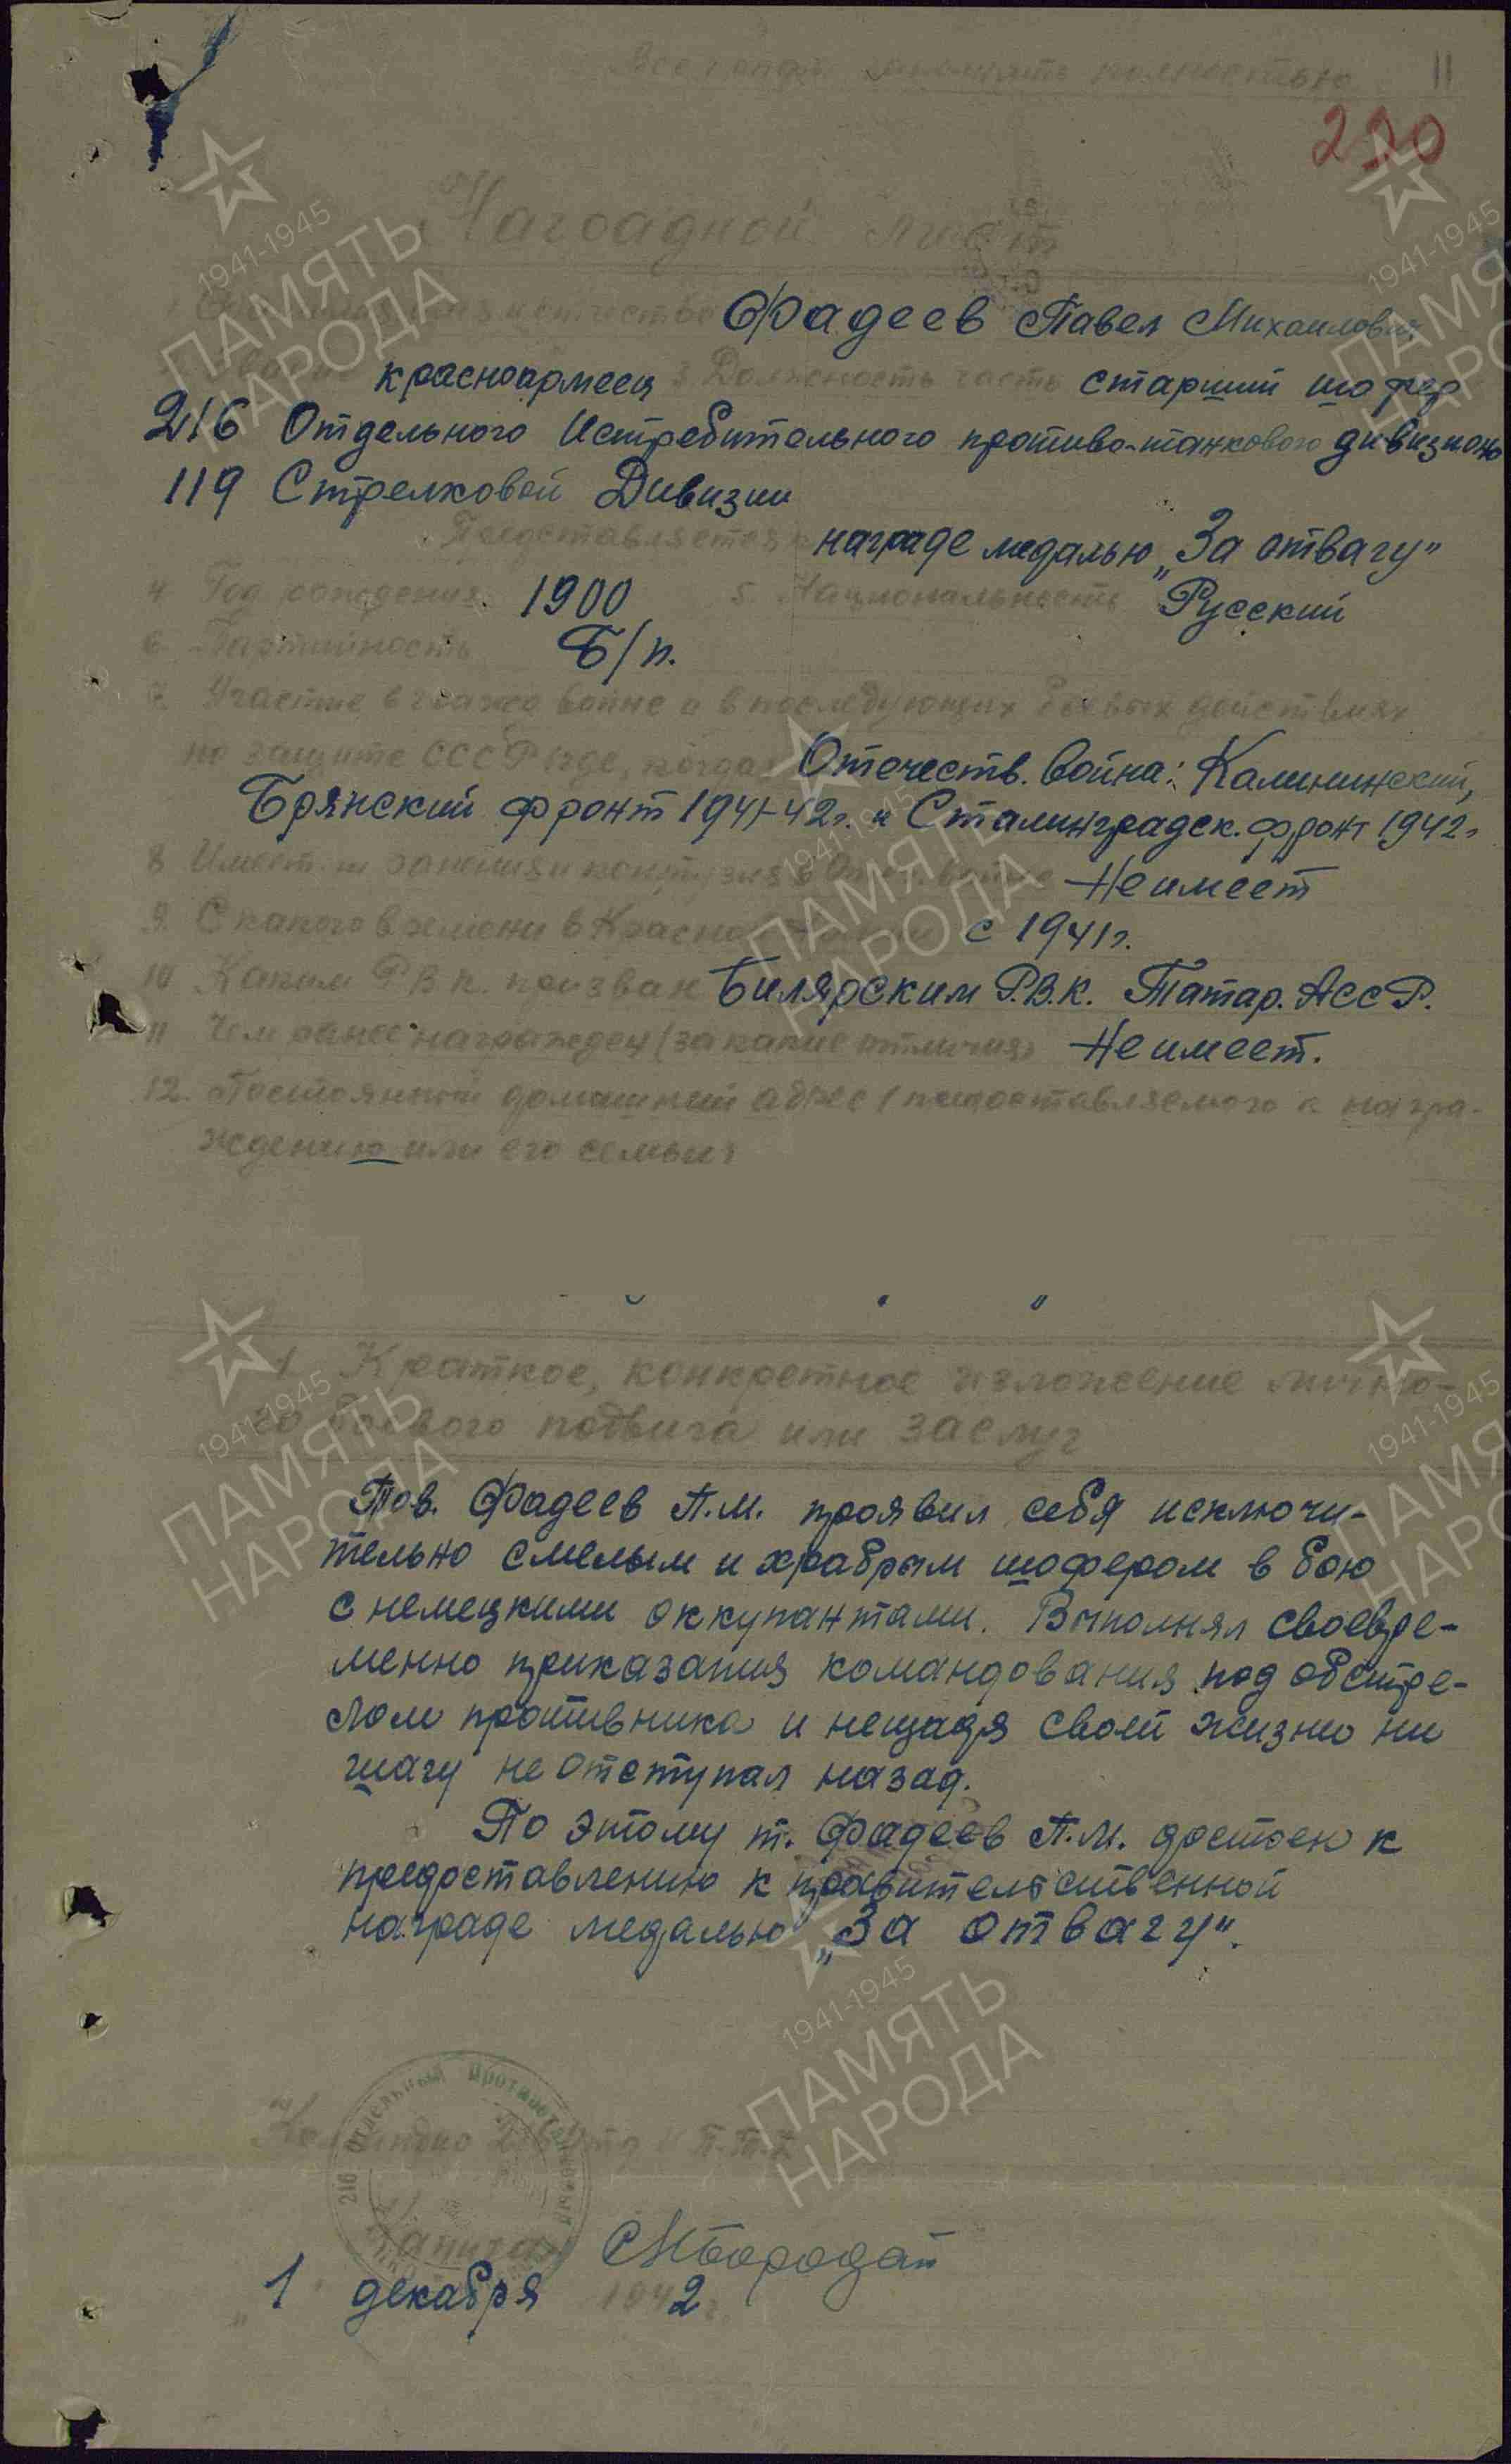 Все графы заполнять полностью 11
220
Наградной лист
Фамилия имя и отчество Фадеев Павел Михайлович
Звание красноармеец 3 Должность часть старший шофер
216 Отдельного Истребительного противо-танкового дивизиона
119 Стрелковой Дивизии
Представляется к награде медалью „За отвагу"
4 Год рождения 1900 5. Национальность Русский
6 Партийность Б/п.
7 Участие в гражд войне и в последующих боевых действиях
по защите СССР (где, когда) Отечеств. война: Калининский,
Брянский фронт 1941-42г. и Сталинградск. фронт 1942г
8 Имеет ли ранения и контузия в Отеч. войне Не имеет
9 С какого времени в Красной Армии с 1941г.
10 Каким РВК. призван Билярским Р.В.К. Татар. АССР.
11 Чем ранее награжден (за какие отличия) Не имеет.
12. Постоянный домашний адрес (представляемого к награ-
ждению или его семьи)
1 Краткое, конкретное изложение лично-
го боевого подвига или заслуг
Тов. Фадеев П.М. проявил себя исключи-
тельно смелым и храбрым шофером в бою
с немецкими оккупантами. Выполнял своевре-
менно приказания командования под обстре-
лом противника и нещадя своей жизню ни
шагу не отступал назад.
По этому т. Фадеев П.М. достоен к
предоставлению к правителственной
награде медалью „За отвагу".
216 Отдельный противотанковый
Капитан
1 декабря 1942г.
1941-1945
ПАМЯТЬ
НАРОДА